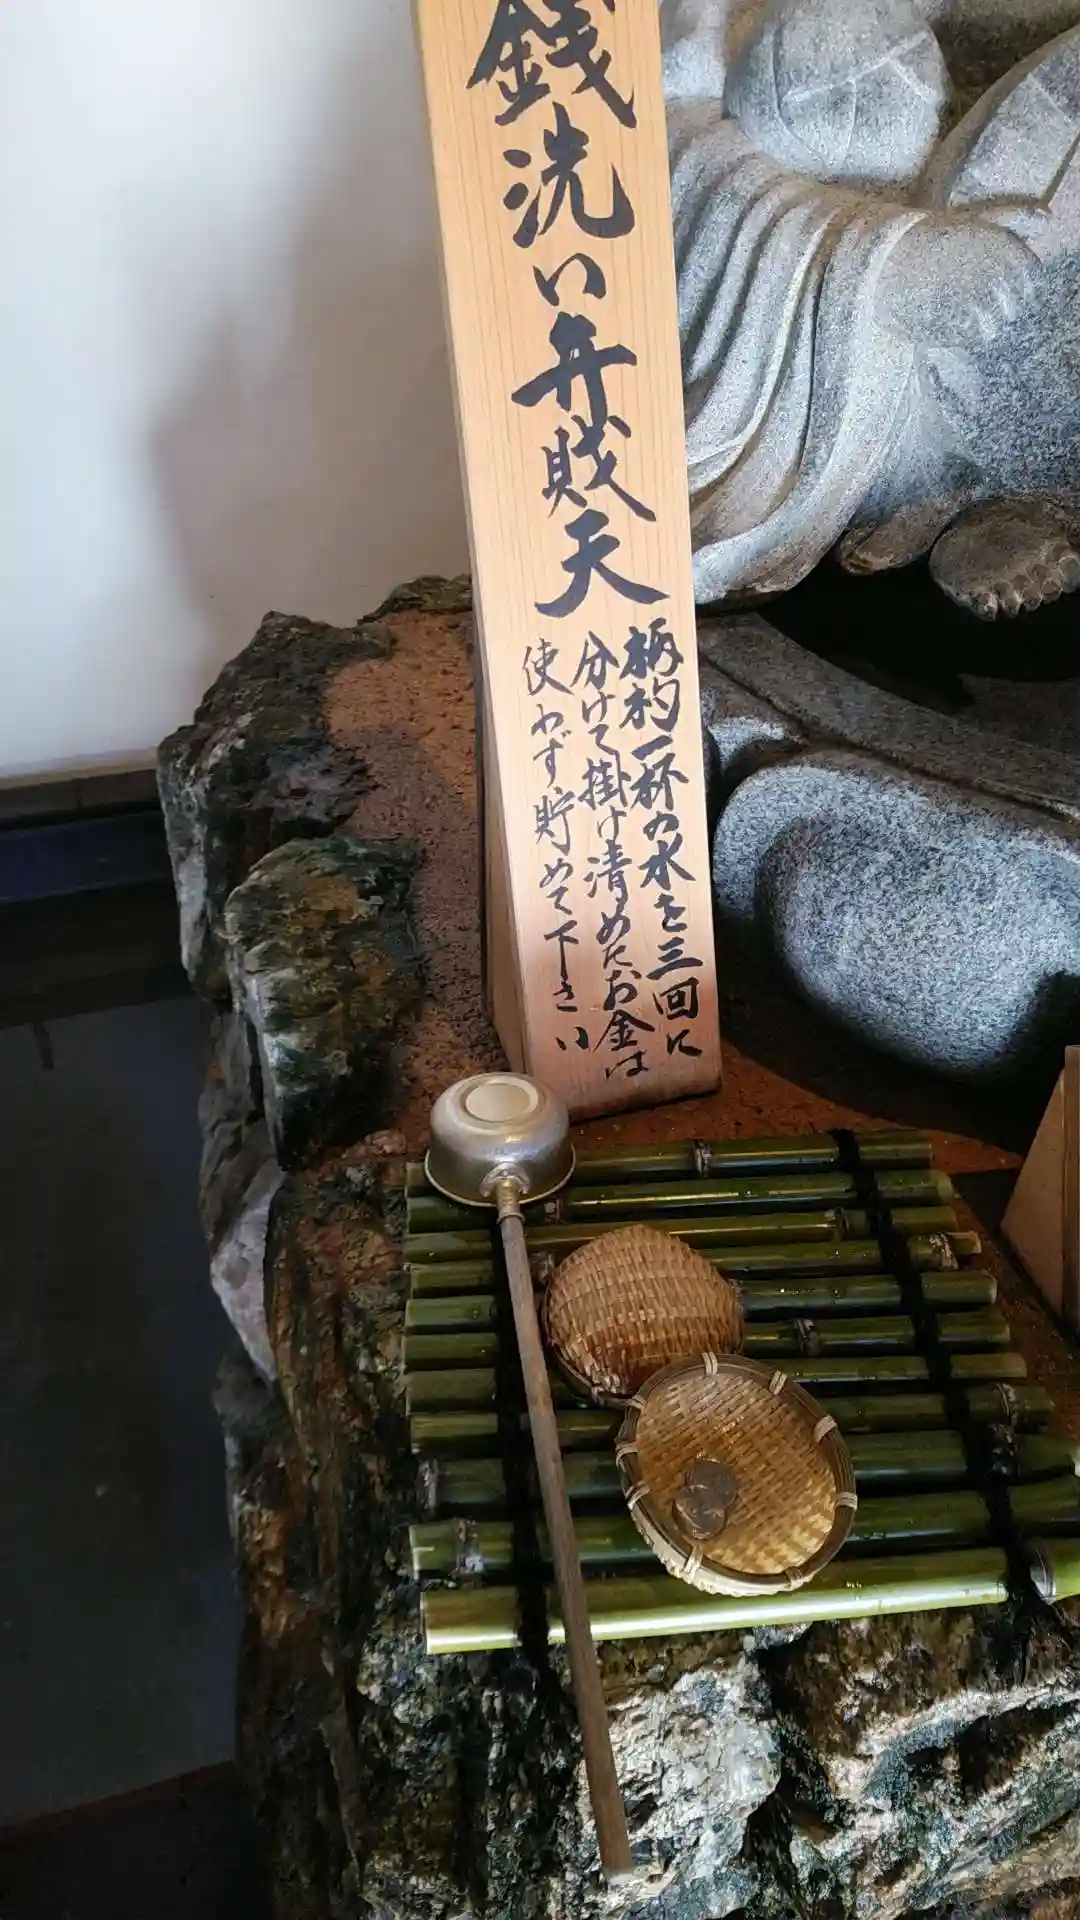 銭洗い弁財天
柄杓一杯の水を三回に
分けて掛け清めたお金は
使わず貯めて下さい